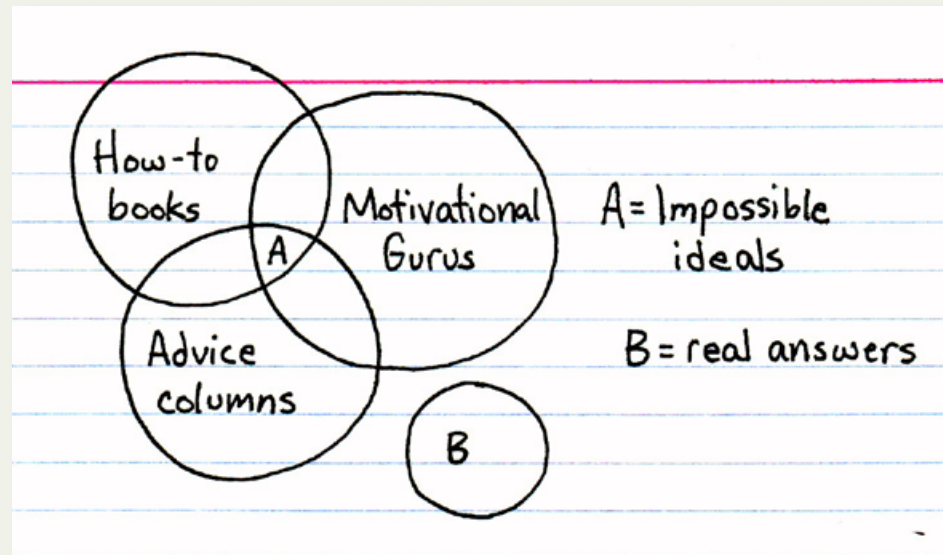 How-to
books
Motivational
Gurus
A
Advice
columns
B
A = Impossible
ideals
B = real answers